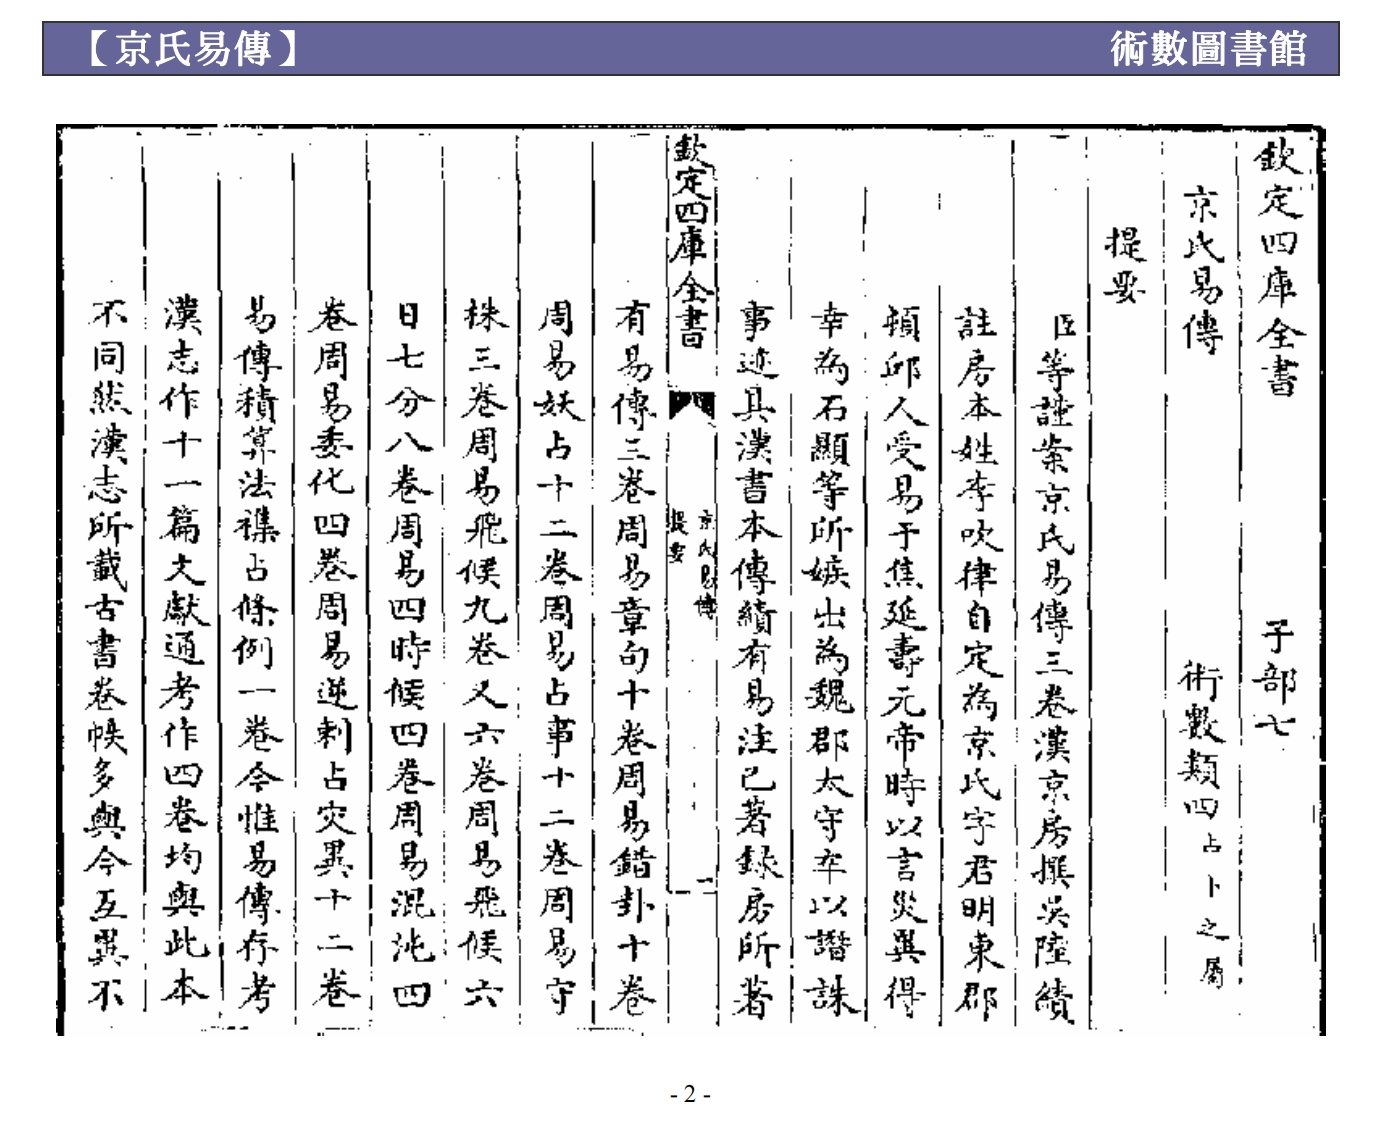 【京氏易傳】 術數圖書館
欽定四庫全書 子部七
京氏易傳 術數類四占卜之屬
提要
臣等謹案京氏易傳三卷漢京房撰吳陸績
註房本姓李吹律自定為京氏字君明東郡
頓邱人受易于焦延壽元帝時以言災異得
幸為石顯等所嫉出為魏郡太守卒以譖誅
事迹具漢書本傳績有易注已著錄房所著
欽定四庫全書
京氏易傳
提要
一
有易傳三卷周易章句十卷周易錯卦十卷
周易妖占十二卷周易占事十二卷周易守
株三卷周易飛候九卷又六卷周易飛候六
日七分八卷周易四時候四卷周易混沌四
卷周易委化四卷周易逆刺占災異十二卷
易傳積算法襍占條例一卷今惟易傳存考
漢志作十一篇文獻通考作四卷均與此本
不同然漢志所載古書卷帙多與今互異不
- 2 -